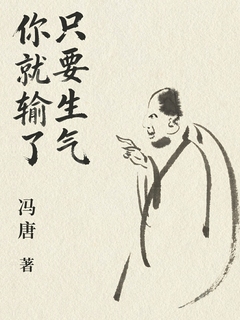 只要生气
你就输了
冯唐 著